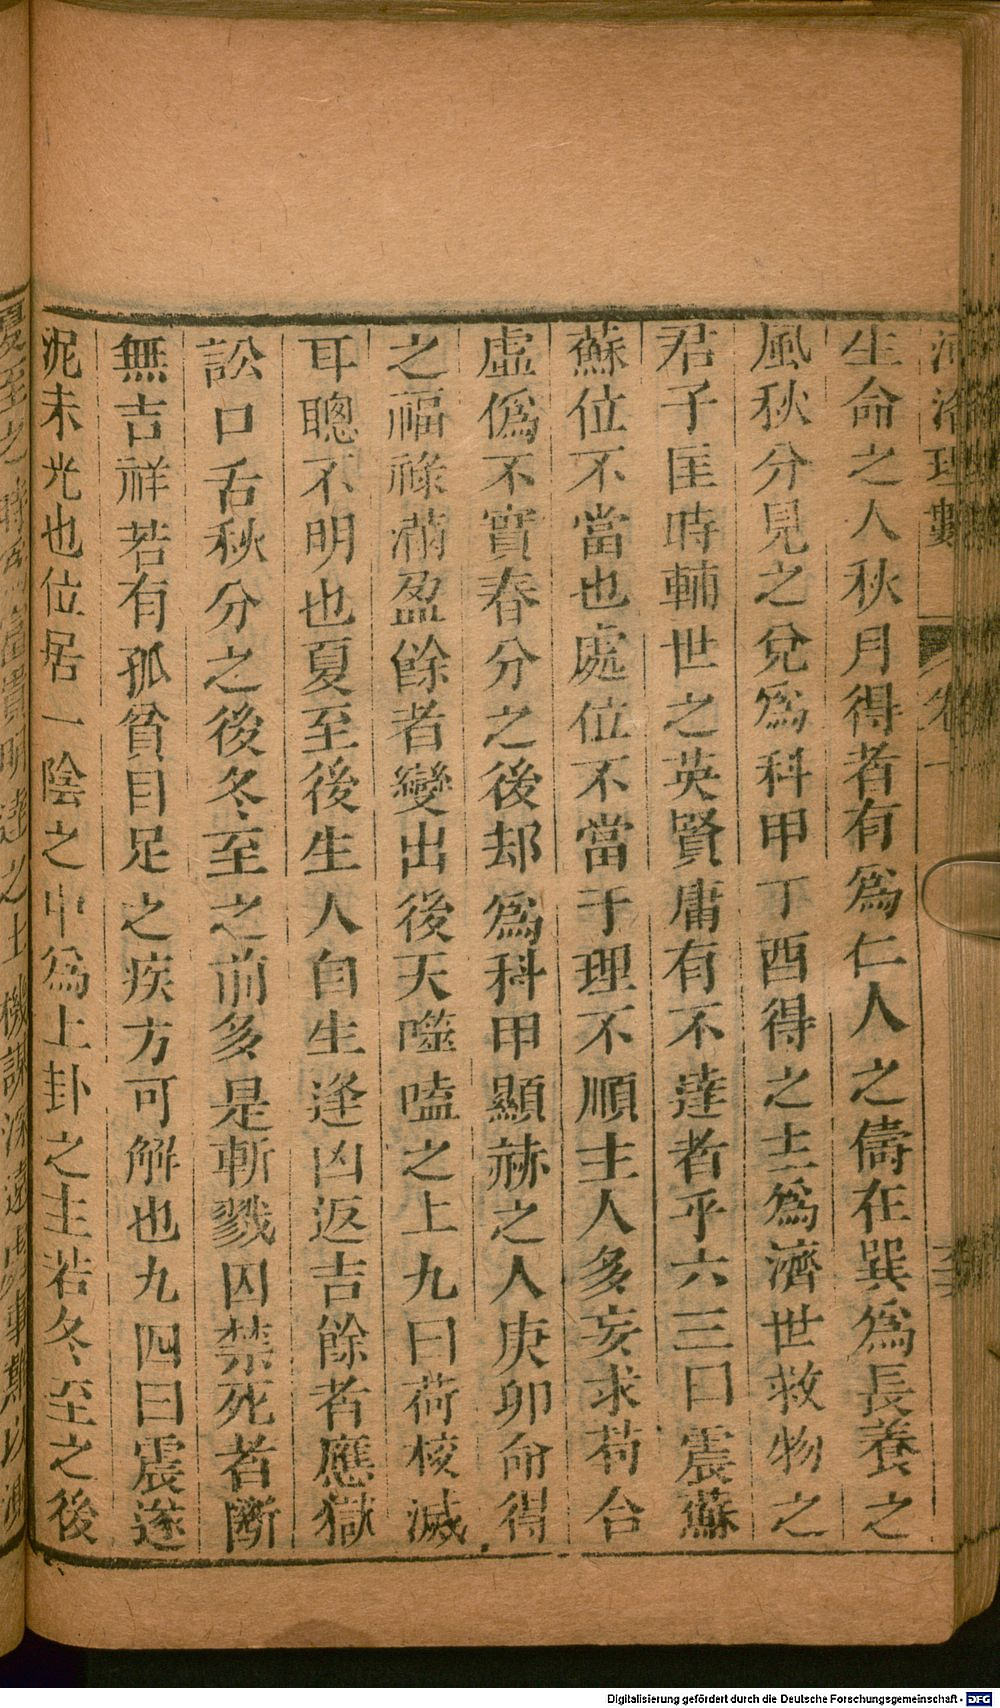 河洛理數 卷一
生命之人秋月得者有爲仁人之儔在巽爲長養之
風秋分見之兌爲科甲丁酉得之主爲濟世救物之
君子匡時輔世之英賢庸有不達者乎六三曰震蘇
蘇位不當也處位不當于理不順主人多妄求苟合
虛偽不實春分之後却爲科甲顯赫之人庚卯命得
之福祿滿盈餘者變出後天噬嗑之上九曰荷校滅
耳聰不明也夏至後生人自生逢凶返吉餘者應獄
訟口舌秋分之後冬至之前多是斬戮囚禁死者斷
無吉祥若有孤貧目足之疾方可解也九四曰震遂
泥未光也位居一陰之中爲上卦之主若冬至之後
Digitalisierung gefördert durch die Deutsche Forschungsgemeinschaft - DFG